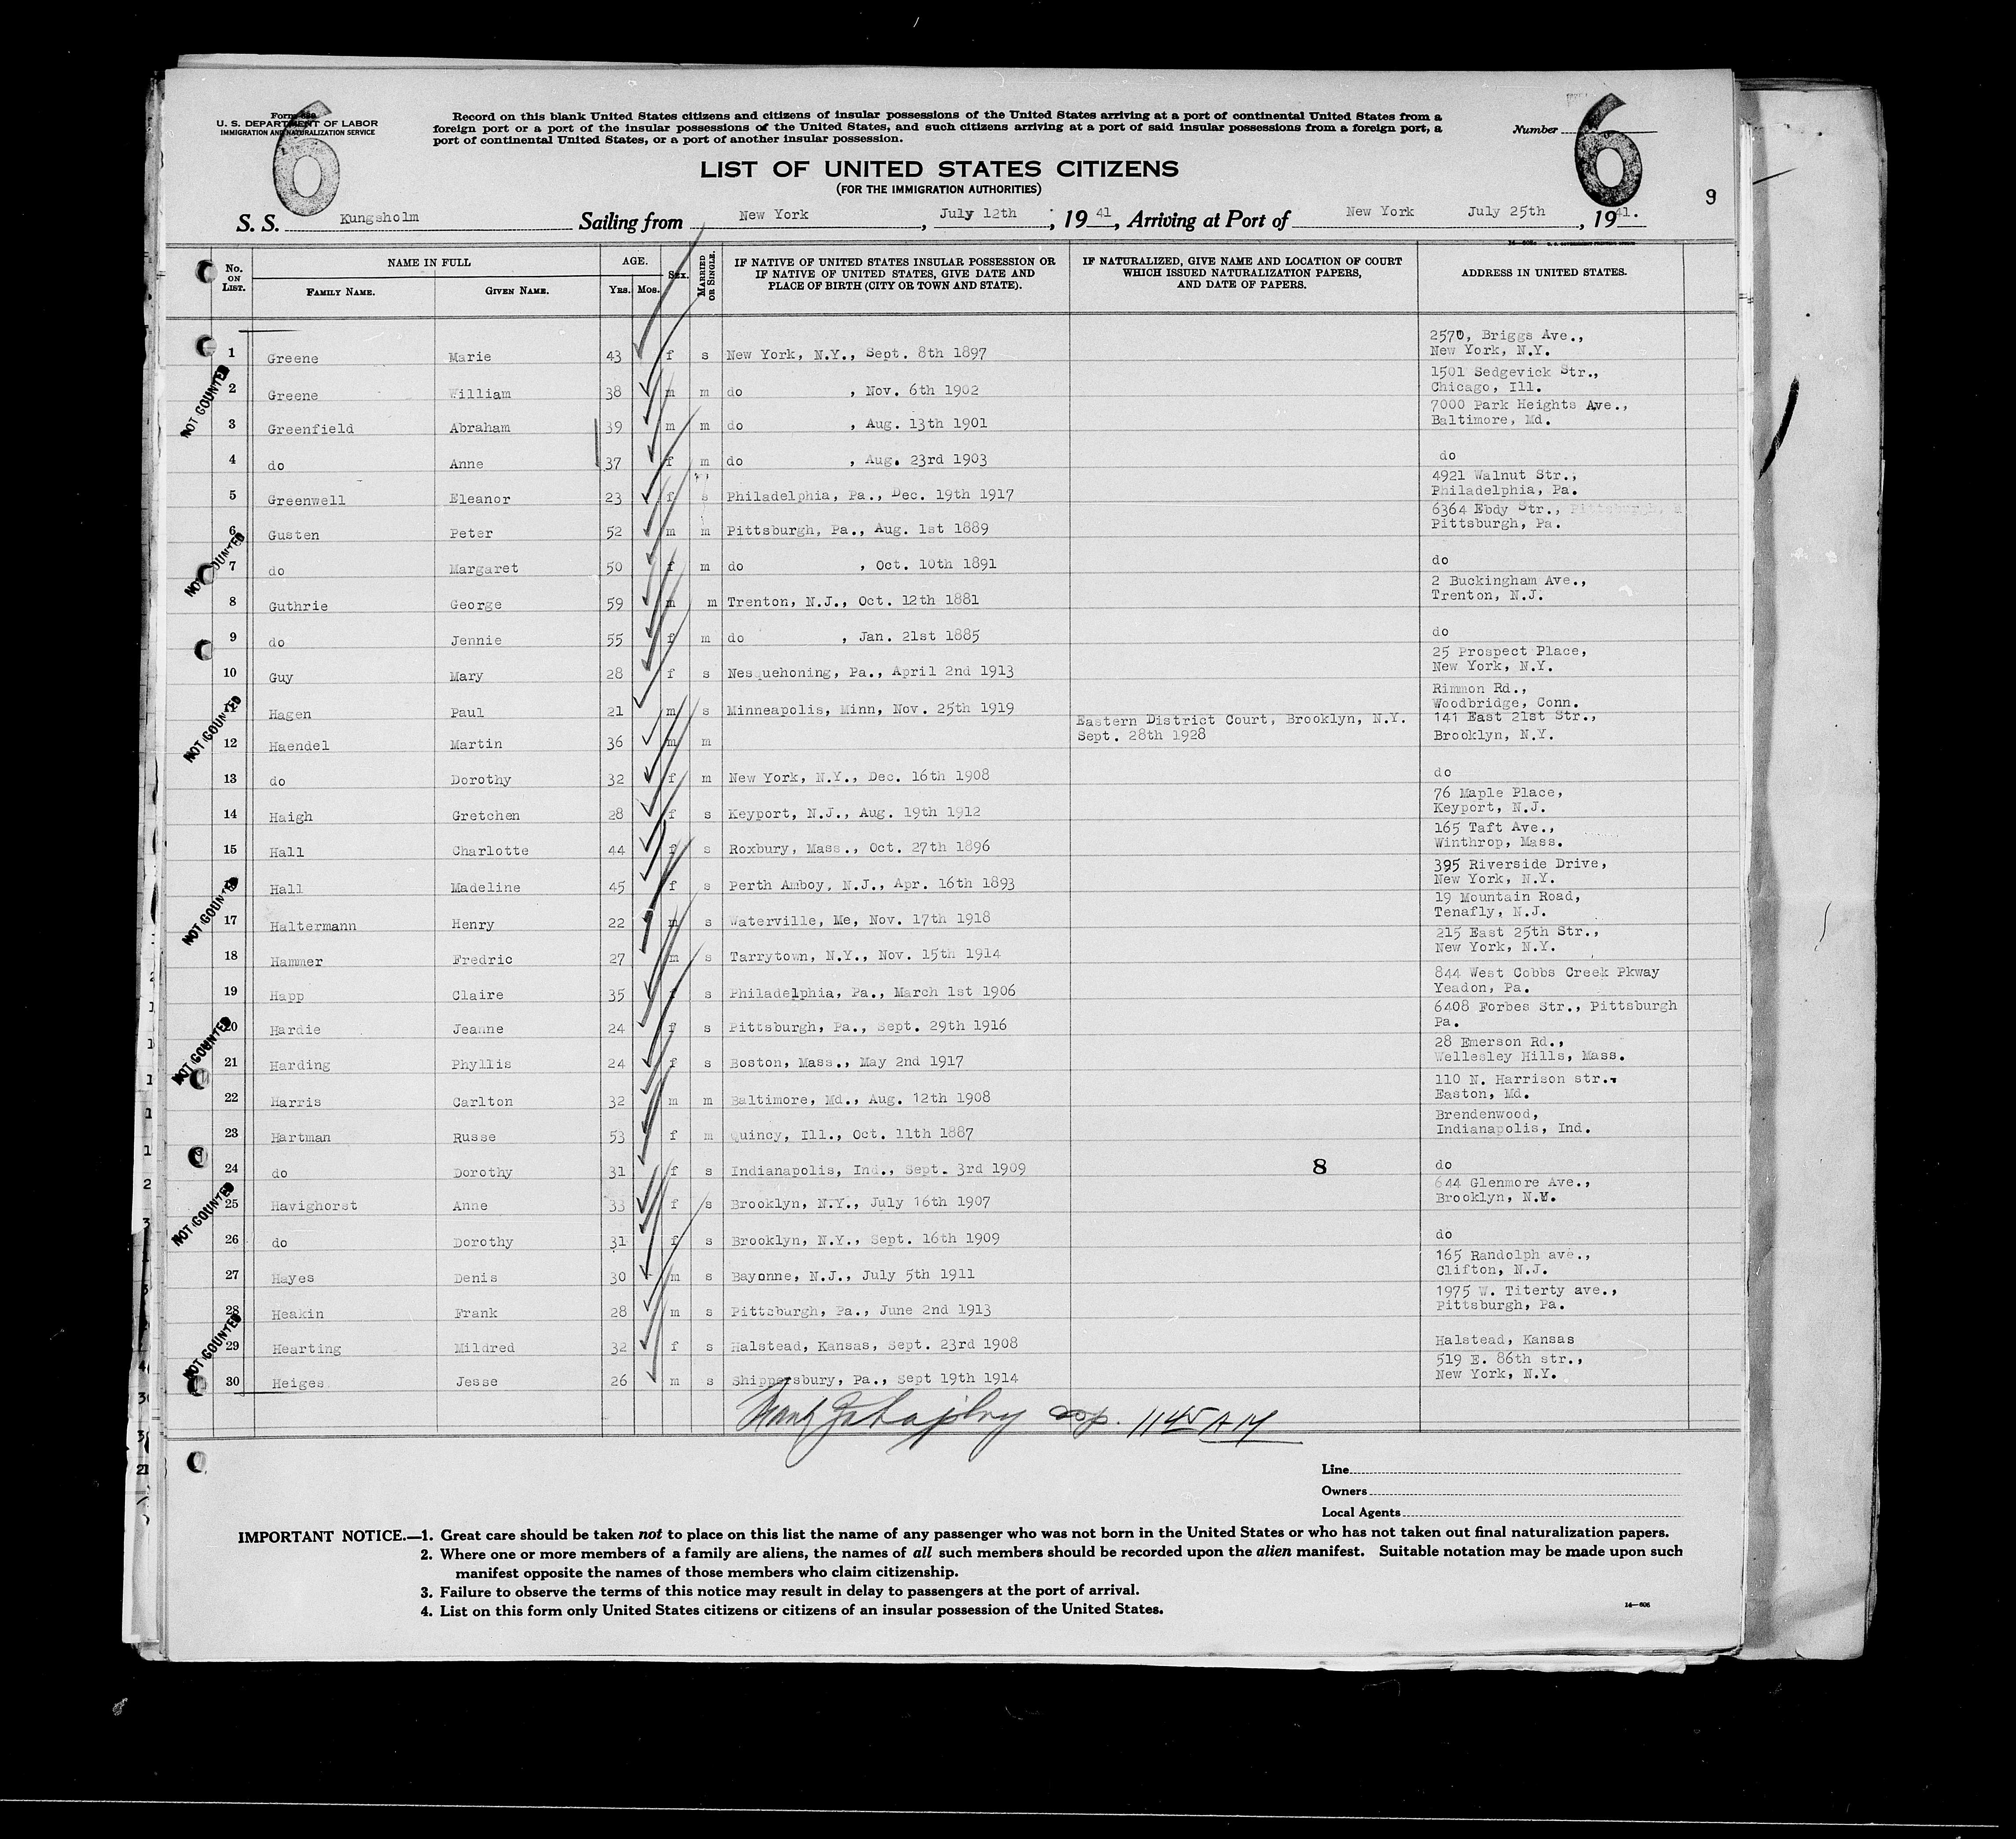 Form 630
U. S. DEPARTMENT OF LABOR
IMMIGRATION AND NATURALIZATION SERVICE
6
Record on this blank United States citizens and citizens of insular possessions of the United States arriving at a port of continental United States from a
foreign port or a port of the insular possessions of the United States, and such citizens arriving at a port of said insular possessions from a foreign port, a
port of continental United States, or a port of another insular possession.
Number
6
9
LIST OF UNITED STATES CITIZENS
(FOR THE IMMIGRATION AUTHORITIES)
S. S. Kungsholm Sailing from New York, July 12th, 1941, Arriving at Port of New York July 25th, 1941.
No. ON LIST. NAME IN FULL FAMILY NAME. GIVEN NAME. AGE. YRS. MOS. SEX. MARRIED OR SINGLE. IF NATIVE OF UNITED STATES INSULAR POSSESSION OR IF NATIVE OF UNITED STATES, GIVE DATE AND PLACE OF BIRTH (CITY OR TOWN AND STATE). IF NATURALIZED, GIVE NAME AND LOCATION OF COURT WHICH ISSUED NATURALIZATION PAPERS, AND DATE OF PAPERS. ADDRESS IN UNITED STATES.
1 Greene Marie 43 f s New York, N.Y., Sept. 8th 1897 2570, Briggs Ave., New York, N.Y.
NOT COUNTED
2 Greene William 38 m m do , Nov. 6th 1902 1501 Sedgevick Str., Chicago, Ill.
3 Greenfield Abraham 39 m m do , Aug. 13th 1901 7000 Park Heights Ave., Baltimore, Md.
4 do Anne 37 f m do , Aug. 23rd 1903 do
5 Greenwell Eleanor 23 f s Philadelphia, Pa., Dec. 19th 1917 4921 Walnut Str., Philadelphia, Pa.
6 Gusten Peter 52 m m Pittsburgh, Pa., Aug. 1st 1889 6364 Ebdy Str., Pittsburgh, Pa.
NOT COUNTED
7 do Margaret 50 f m do , Oct. 10th 1891 do
8 Guthrie George 59 m m Trenton, N.J., Oct. 12th 1881 2 Buckingham Ave., Trenton, N.J.
9 do Jennie 55 f m do , Jan. 21st 1885 do
10 Guy Mary 28 f s Nesquehoning, Pa., April 2nd 1913 25 Prospect Place, New York, N.Y.
11 Hagen Paul 21 m s Minneapolis, Minn, Nov. 25th 1919 Rimmon Rd., Woodbridge, Conn.
NOT COUNTED
12 Haendel Martin 36 m m Eastern District Court, Brooklyn, N.Y. Sept. 28th 1928 141 East 21st Str., Brooklyn, N.Y.
13 do Dorothy 32 f m New York, N.Y., Dec. 16th 1908 do
14 Haigh Gretchen 28 f s Keyport, N.J., Aug. 19th 1912 76 Maple Place, Keyport, N.J.
15 Hall Charlotte 44 f s Roxbury, Mass., Oct. 27th 1896 165 Taft Ave., Winthrop, Mass.
Hall Madeline 45 f s Perth Amboy, N.J., Apr. 16th 1893 395 Riverside Drive, New York, N.Y.
NOT COUNTED
17 Haltermann Henry 22 m s Waterville, Me, Nov. 17th 1918 19 Mountain Road, Tenafly, N.J.
18 Hammer Fredric 27 m s Tarrytown, N.Y., Nov. 15th 1914 215 East 25th Str., New York, N.Y.
19 Happ Claire 35 f s Philadelphia, Pa., March 1st 1906 844 West Cobbs Creek Pkway Yeadon, Pa.
20 Hardie Jeanne 24 f s Pittsburgh, Pa., Sept. 29th 1916 6408 Forbes Str., Pittsburgh Pa.
NOT COUNTED
21 Harding Phyllis 24 f s Boston, Mass., May 2nd 1917 28 Emerson Rd., Wellesley Hills, Mass.
22 Harris Carlton 32 m m Baltimore, Md., Aug. 12th 1908 110 N. Harrison str., Easton, Md.
23 Hartman Russe 53 f m Quincy, Ill., Oct. 11th 1887 Brendenwood, Indianapolis, Ind.
24 do Dorothy 31 f s Indianapolis, Ind., Sept. 3rd 1909 8 do
25 Havighorst Anne 33 f s Brooklyn, N.Y., July 16th 1907 644 Glenmore Ave., Brooklyn, N.Y.
NOT COUNTED
26 do Dorothy 31 f s Brooklyn, N.Y., Sept. 16th 1909 do
27 Hayes Denis 30 m s Bayonne, N.J., July 5th 1911 165 Randolph ave., Clifton, N.J.
28 Heakin Frank 28 m s Pittsburgh, Pa., June 2nd 1913 1975 W. Titerty ave., Pittsburgh, Pa.
29 Hearting Mildred 32 f s Halstead, Kansas, Sept. 23rd 1908 Halstead, Kansas
NOT COUNTED
30 Heiges Jesse 26 m s Shippersbury, Pa., Sept 19th 1914 519 E. 86th str., New York, N.Y.
1145 AM
Line
Owners
Local Agents
IMPORTANT NOTICE.—1. Great care should be taken not to place on this list the name of any passenger who was not born in the United States or who has not taken out final naturalization papers.
2. Where one or more members of a family are aliens, the names of all such members should be recorded upon the alien manifest. Suitable notation may be made upon such
manifest opposite the names of those members who claim citizenship.
3. Failure to observe the terms of this notice may result in delay to passengers at the port of arrival.
4. List on this form only United States citizens or citizens of an insular possession of the United States.
14—606